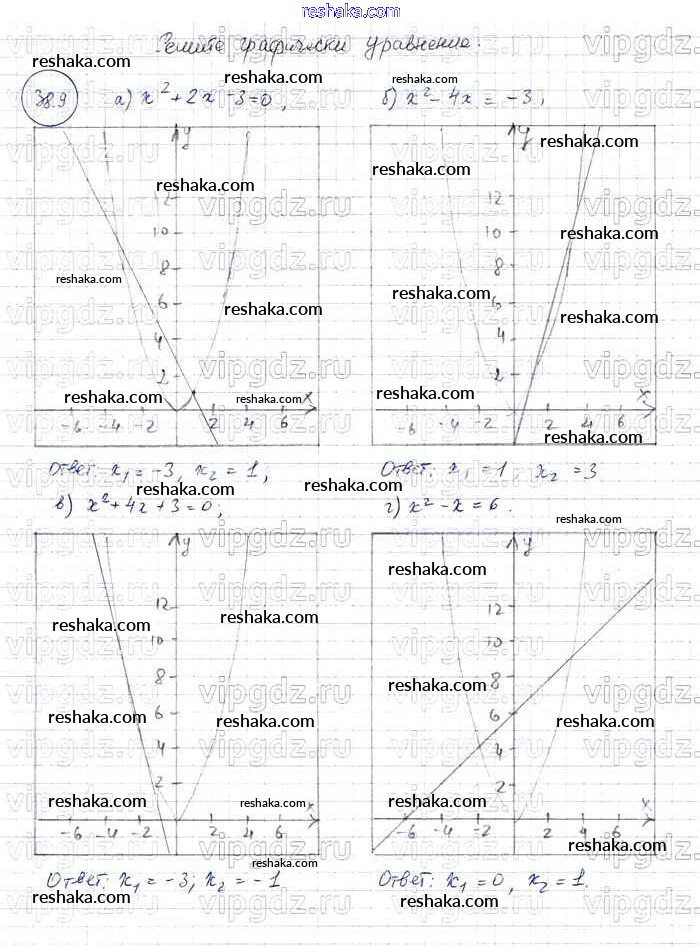 reshaka.com
Решите графически уравнение:
38.9 а) x² + 2x - 3 = 0, б) x² - 4x = -3,
y y
12 12
10 10
8 8
6 6
4 4
2 2
-6 -4 -2 2 4 6 x -6 -4 -2 2 4 6 x
Ответ: x₁ = -3, x₂ = 1, Ответ: x₁ = 1, x₂ = 3
в) x² + 4x + 3 = 0; г) x² - x = 6.
y y
12 12
10 10
8 8
6 6
4 4
2 2
-6 -4 -2 2 4 6 x -6 -4 -2 2 4 6 x
Ответ: x₁ = -3; x₂ = -1 Ответ: x₁ = 0, x₂ = 1.
reshaka.com
vipgdz.ru